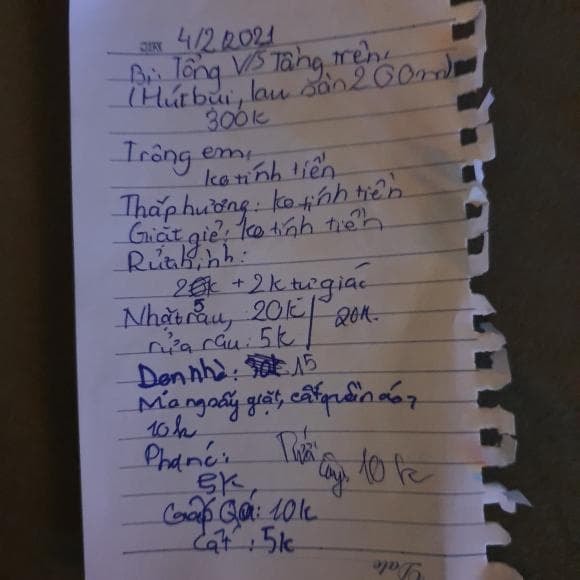 4/2/2021
Bi: Tổng V/S Tầng trên,
(Hút bụi, lau sàn 200m²)
300k
Trông em,
ko tính tiền
Thắp hương: ko tính tiền
Giặt giẻ: ko tính tiền
Rửa
+ 2k tự giác
Nhặt rau, 20k 20k.
rửa rau: 5k
Dọn nhà: 15
Mang sấy giặt, cất quần áo,
10k
Pha
Tưới cây, 10k
5k,
Gấp QA: 10k
Cất: 5k
Date